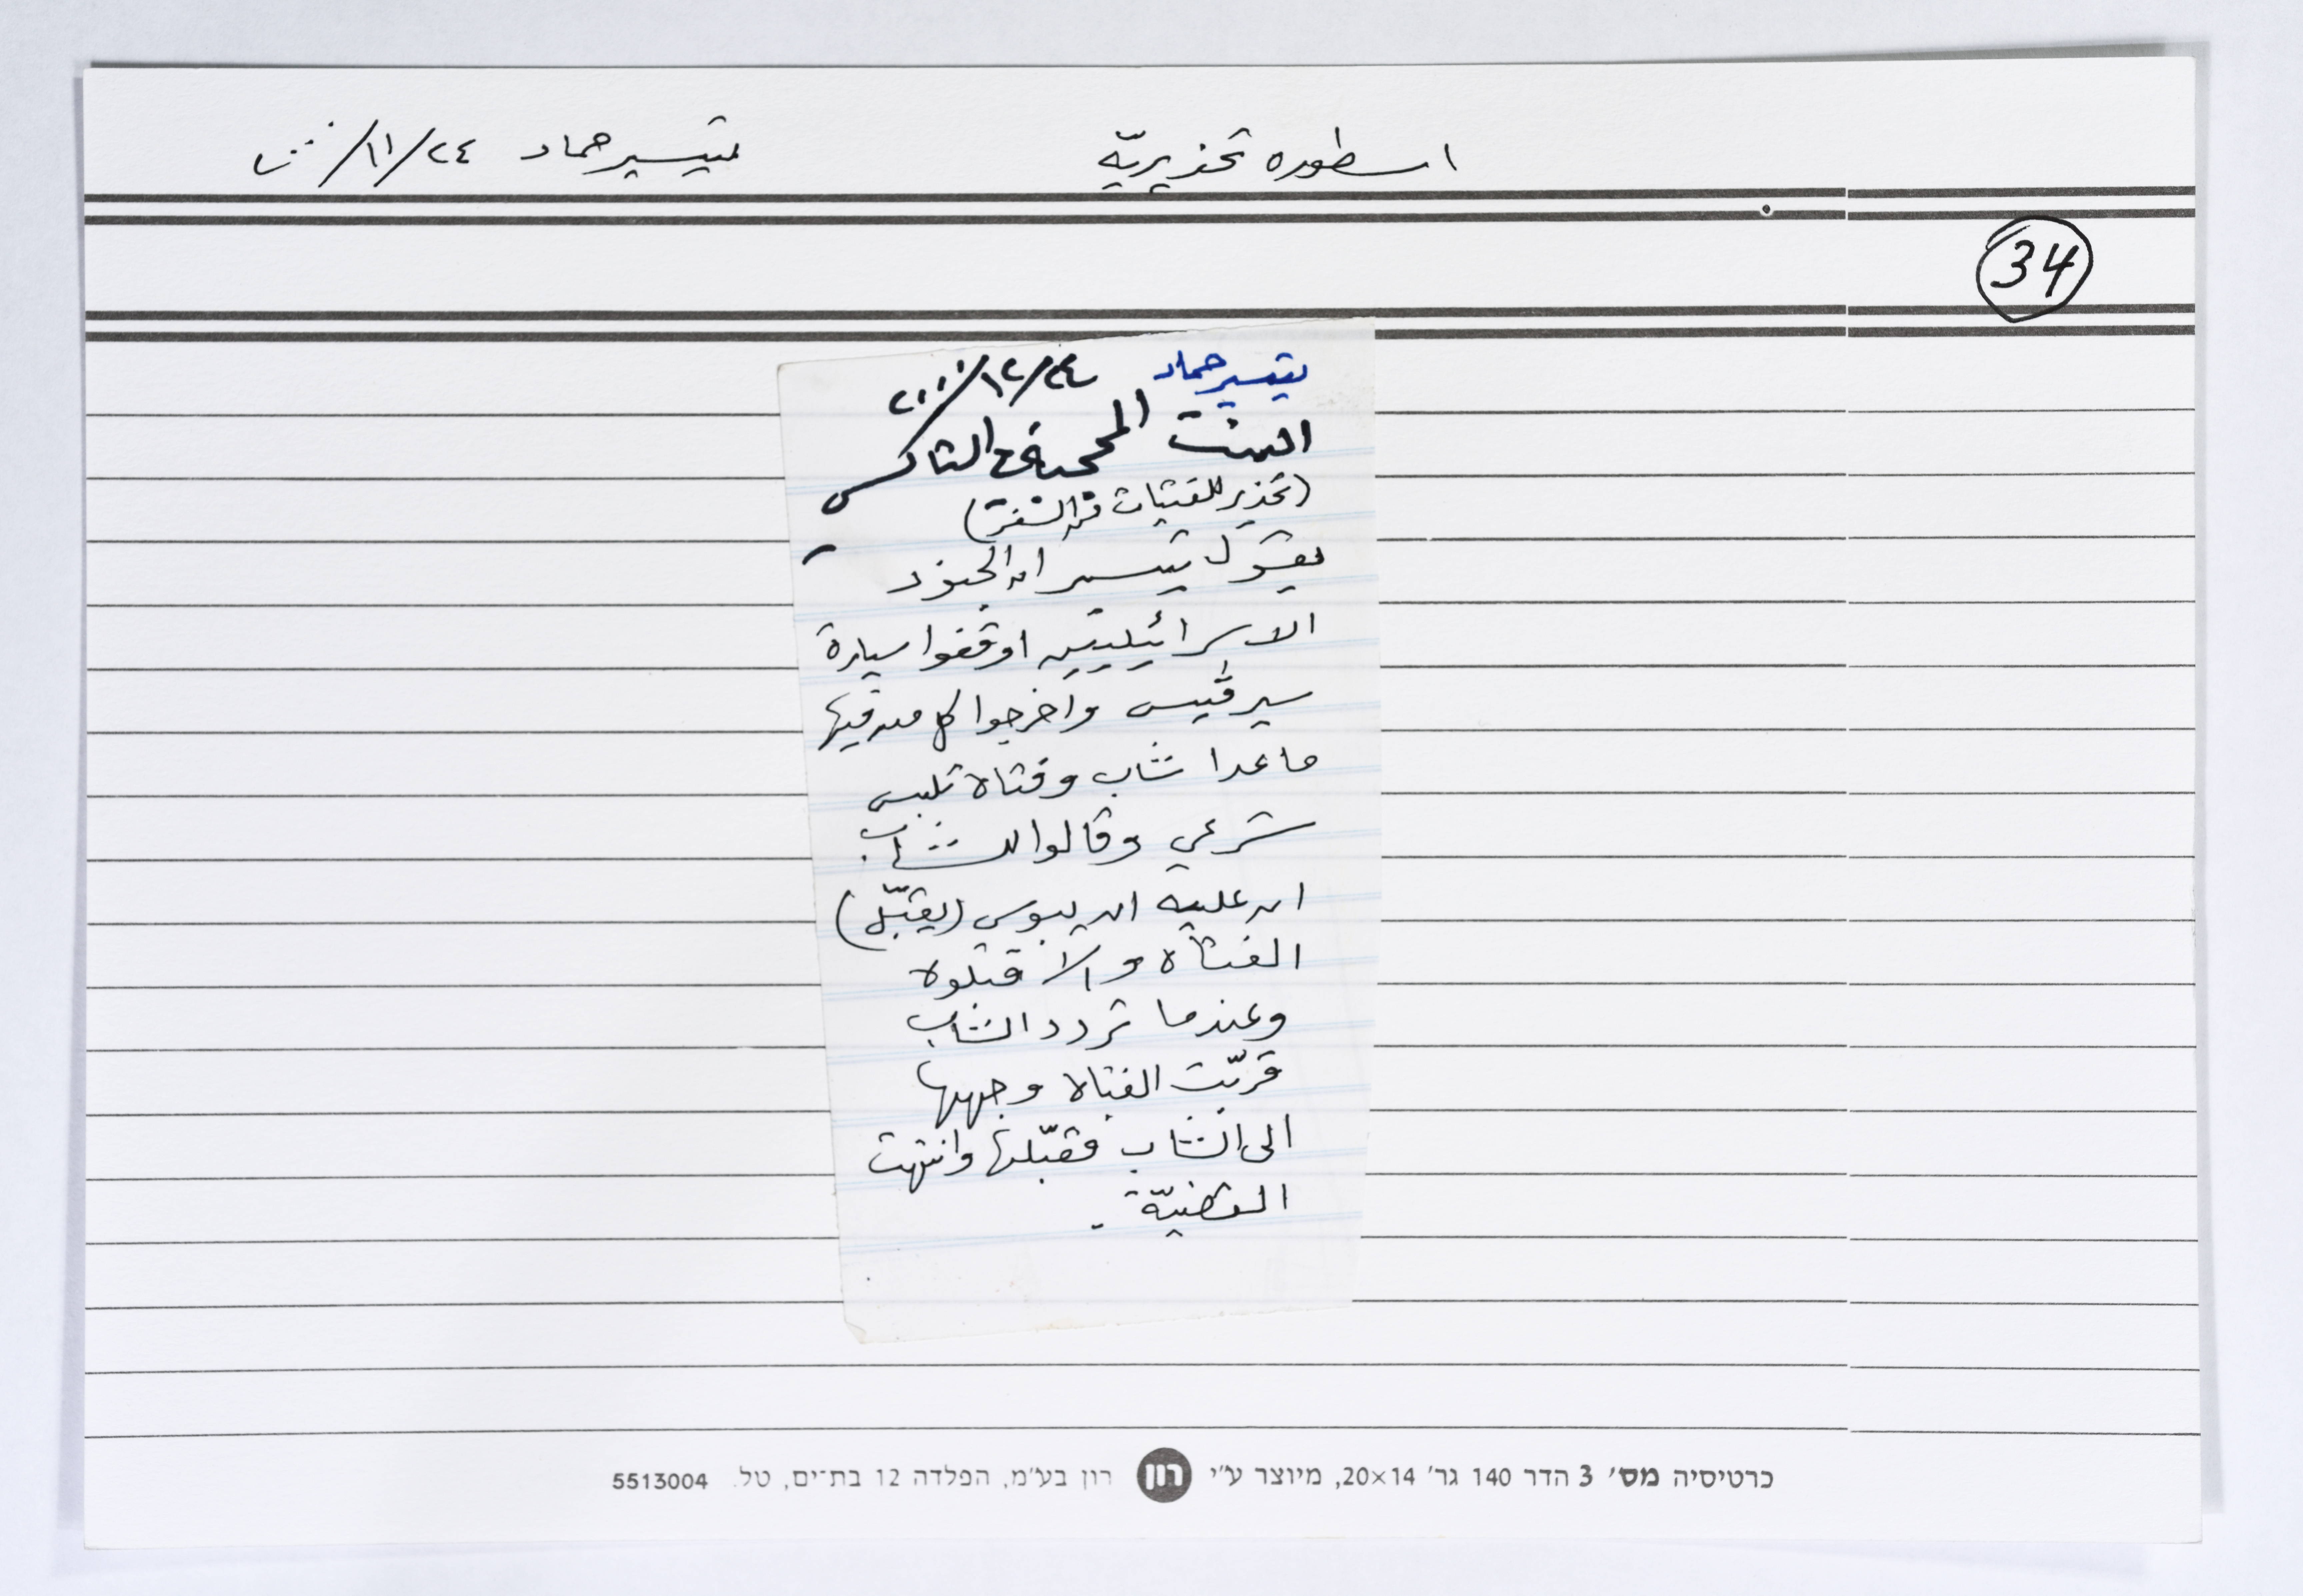 اسطوره تحذيريّه تيسير حماد ٢٤/١١/٢٠٠٠
34
تيسير حماد ٢٤/١٢/٢٠٠٠
البنت المحجبة في التاكسي
(تحذير للفتيات من السفر)
يقول تيسير ان الجنود
الاسرائيليين اوقفوا سيارة
سيرڤيس واخرجوا كل من فيها
ما عدا شاب وفتاة تلبس
شرعي وقالوا للشاب
ان عليه ان يبوس (يقبّل)
الفتاة والا قتلوه
وعندما تردد الشاب
قربّت الفتاة وجهها
الى الشاب فقبّلها وانتهت
القضيّة .
כרטיסיה מס׳ 3 הדר 140 גר׳ 20×14, מיוצר ע״י רון רון בע״מ, הפלדה 12 בת־ים, טל. 5513004